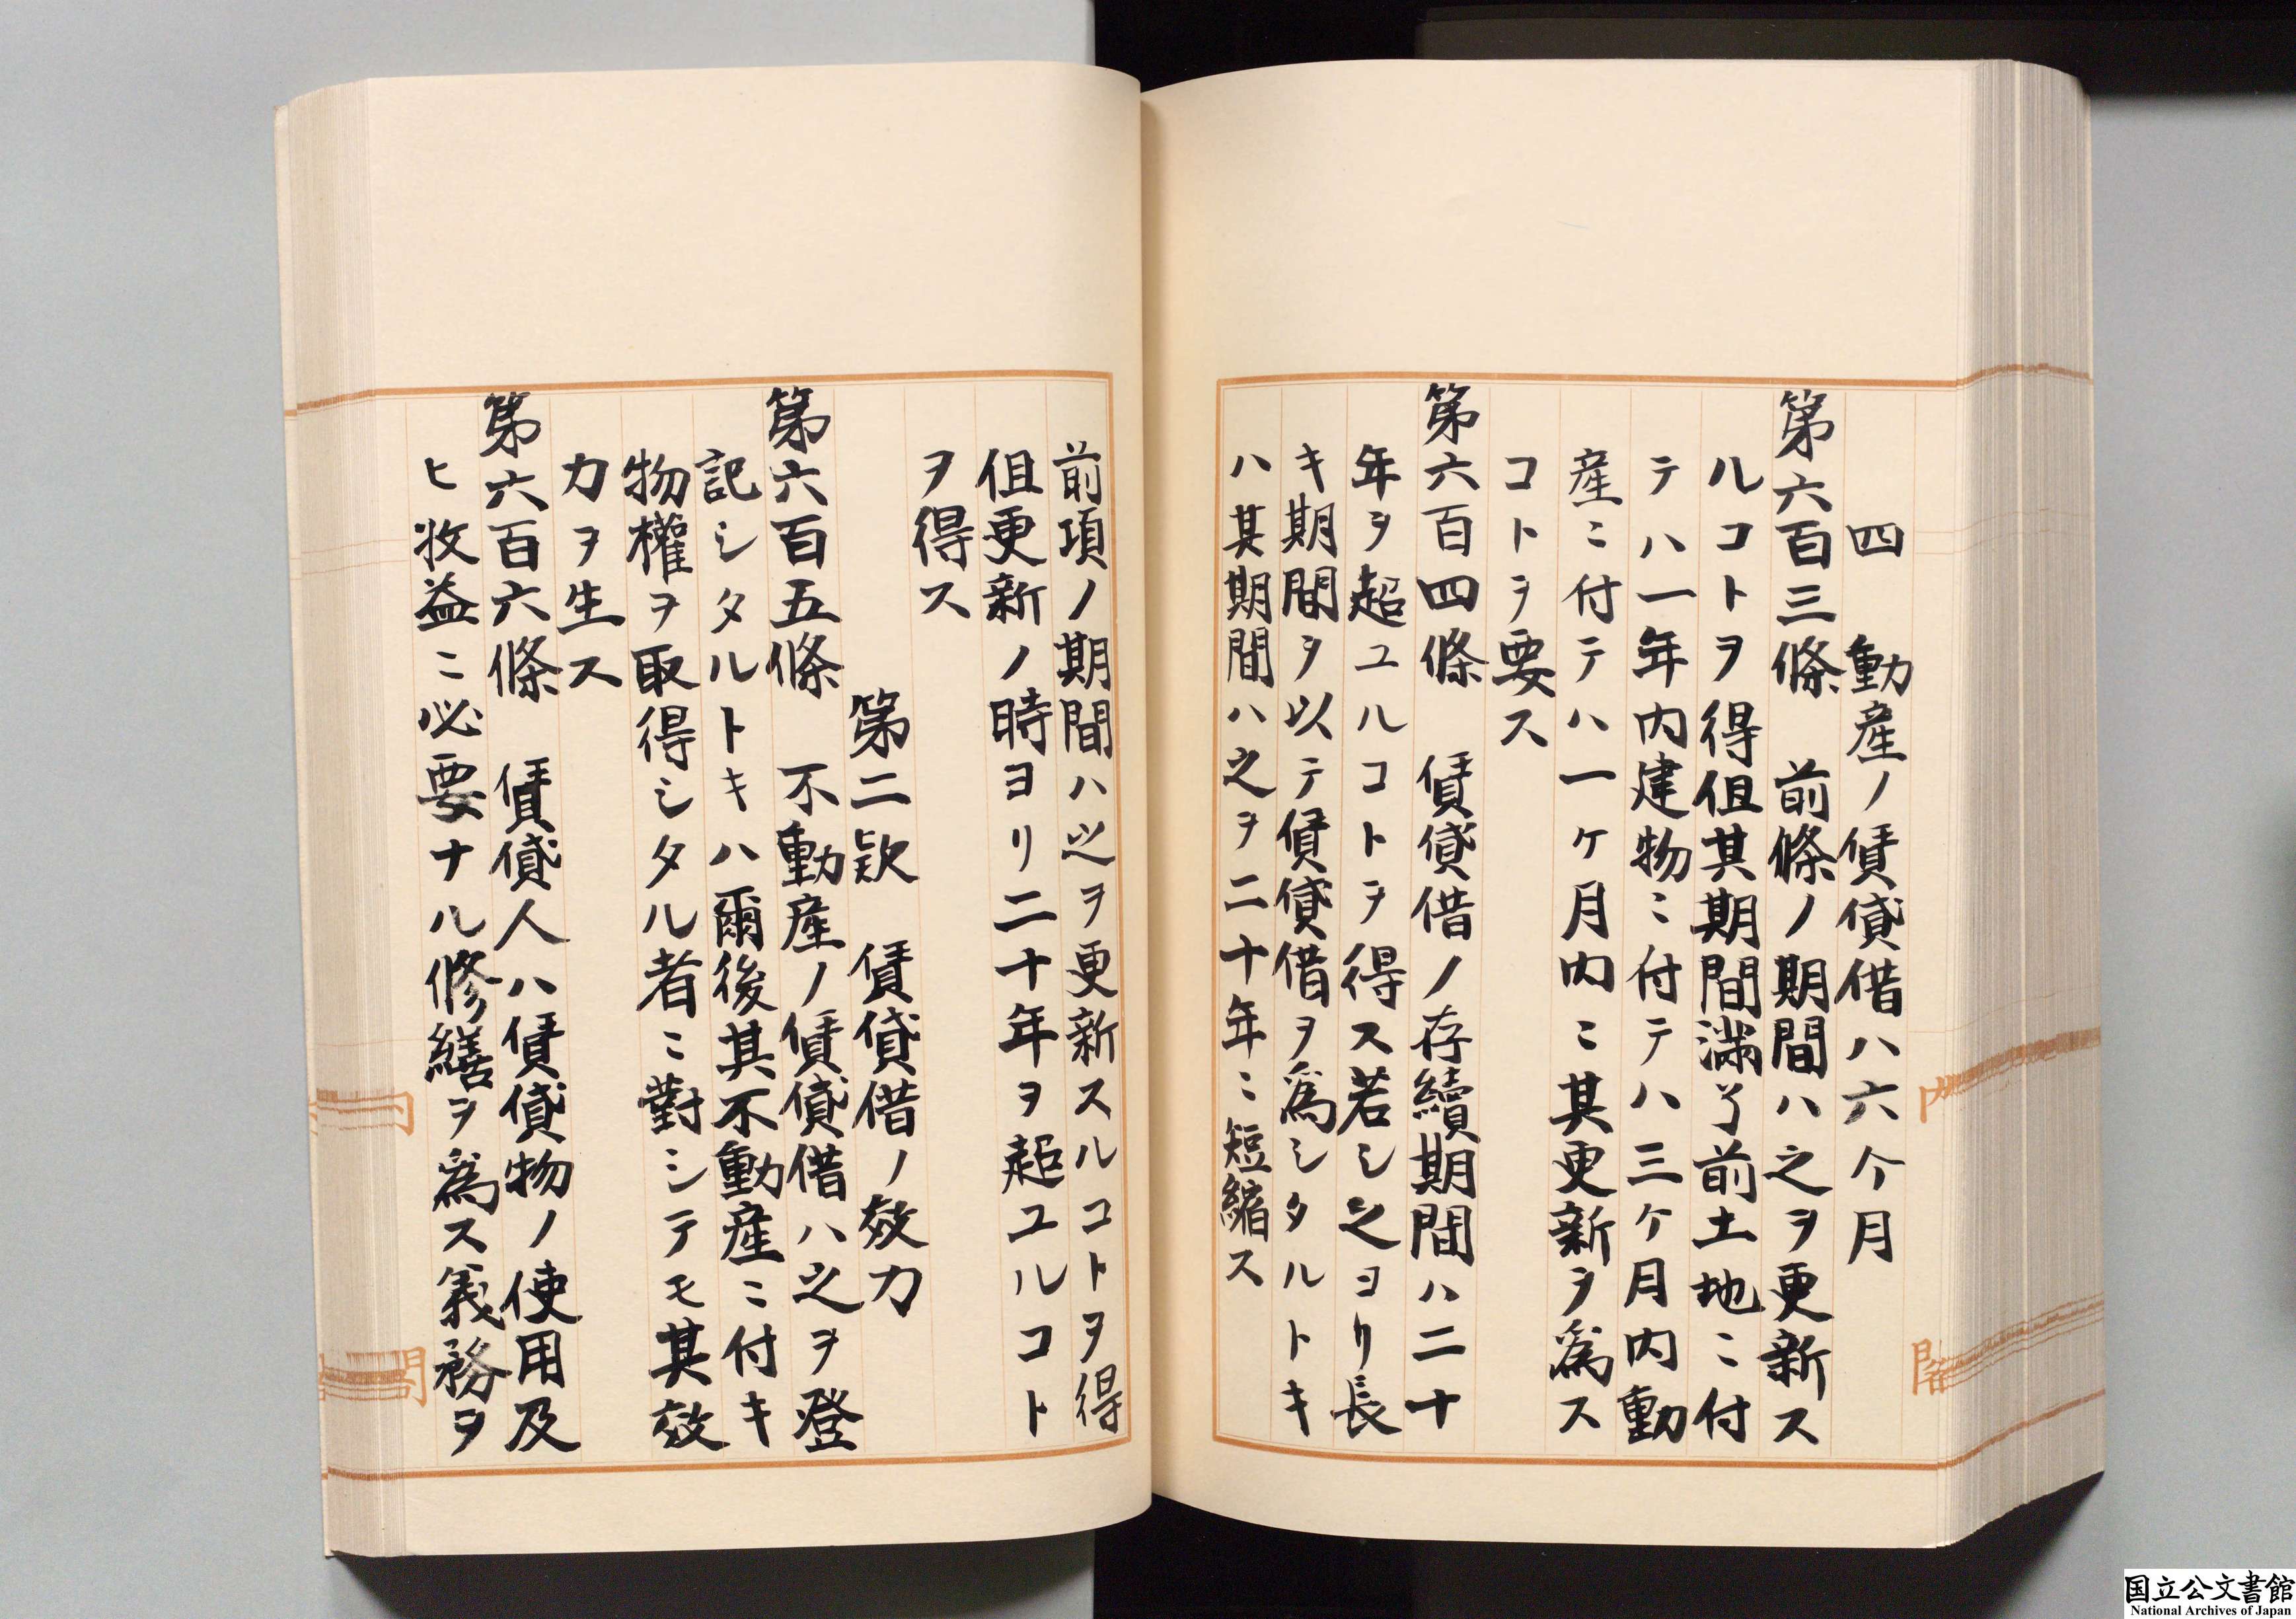 四　動産ノ賃貸借ハ六个月
第六百三條　前條ノ期間ハ之ヲ更新ス
ルコトヲ得但其期間滿了前土地ニ付
テハ一年内建物ニ付テハ三ケ月内動
産ニ付テハ一ケ月内ニ其更新ヲ爲ス
コトヲ要ス
第六百四條　賃貸借ノ存續期間ハ二十
年ヲ超ユルコトヲ得ス若シ之ヨリ長
キ期間ヲ以テ賃貸借ヲ爲シタルトキ
ハ其期間ハ之ヲ二十年ニ短縮ス
前項ノ期間ハ之ヲ更新スルコトヲ得
但更新ノ時ヨリ二十年ヲ超ユルコト
ヲ得ス
第二款　賃貸借ノ效力
第六百五條　不動産ノ賃貸借ハ之ヲ登
記シタルトキハ爾後其不動産ニ付キ
物權ヲ取得シタル者ニ對シテモ其效
力ヲ生ス
第六百六條　賃貸人ハ賃貸物ノ使用及
ヒ收益ニ必要ナル修繕ヲ爲ス義務ヲ
内閣
内閣
国立公文書館
National Archives of Japan